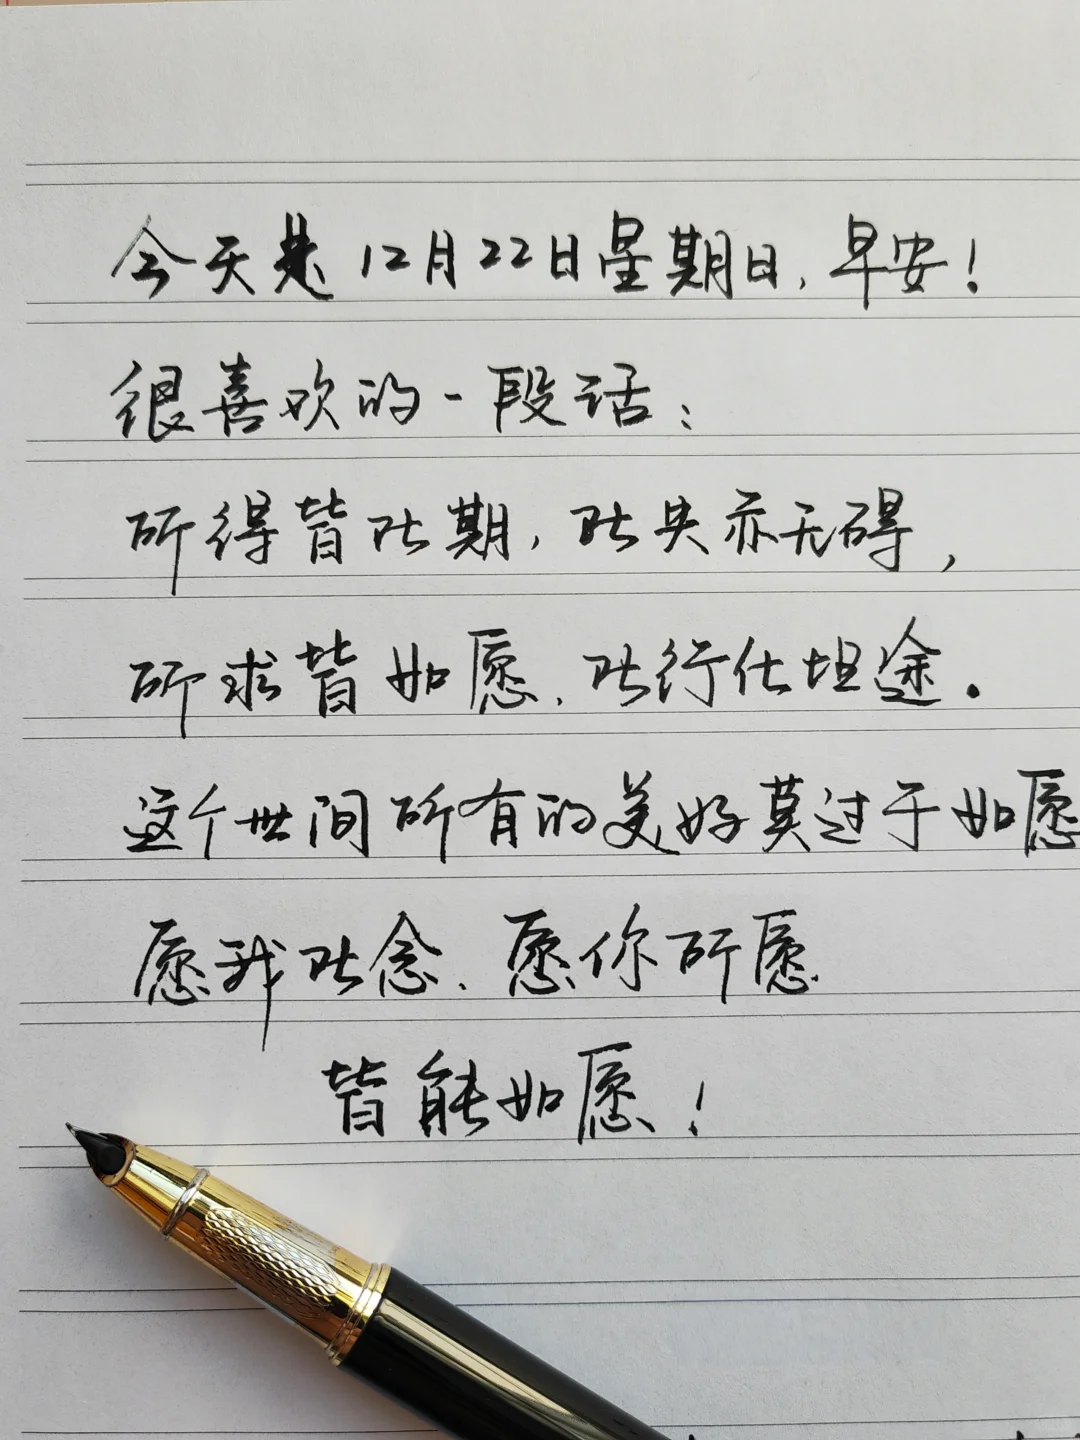 今天是12月22日星期日,早安!
很喜欢的一段话:
所得皆所期,所失亦无碍,
所求皆如愿,所行化坦途。
这个世间所有的美好莫过于如愿
愿我所念、愿你所愿
皆能如愿!